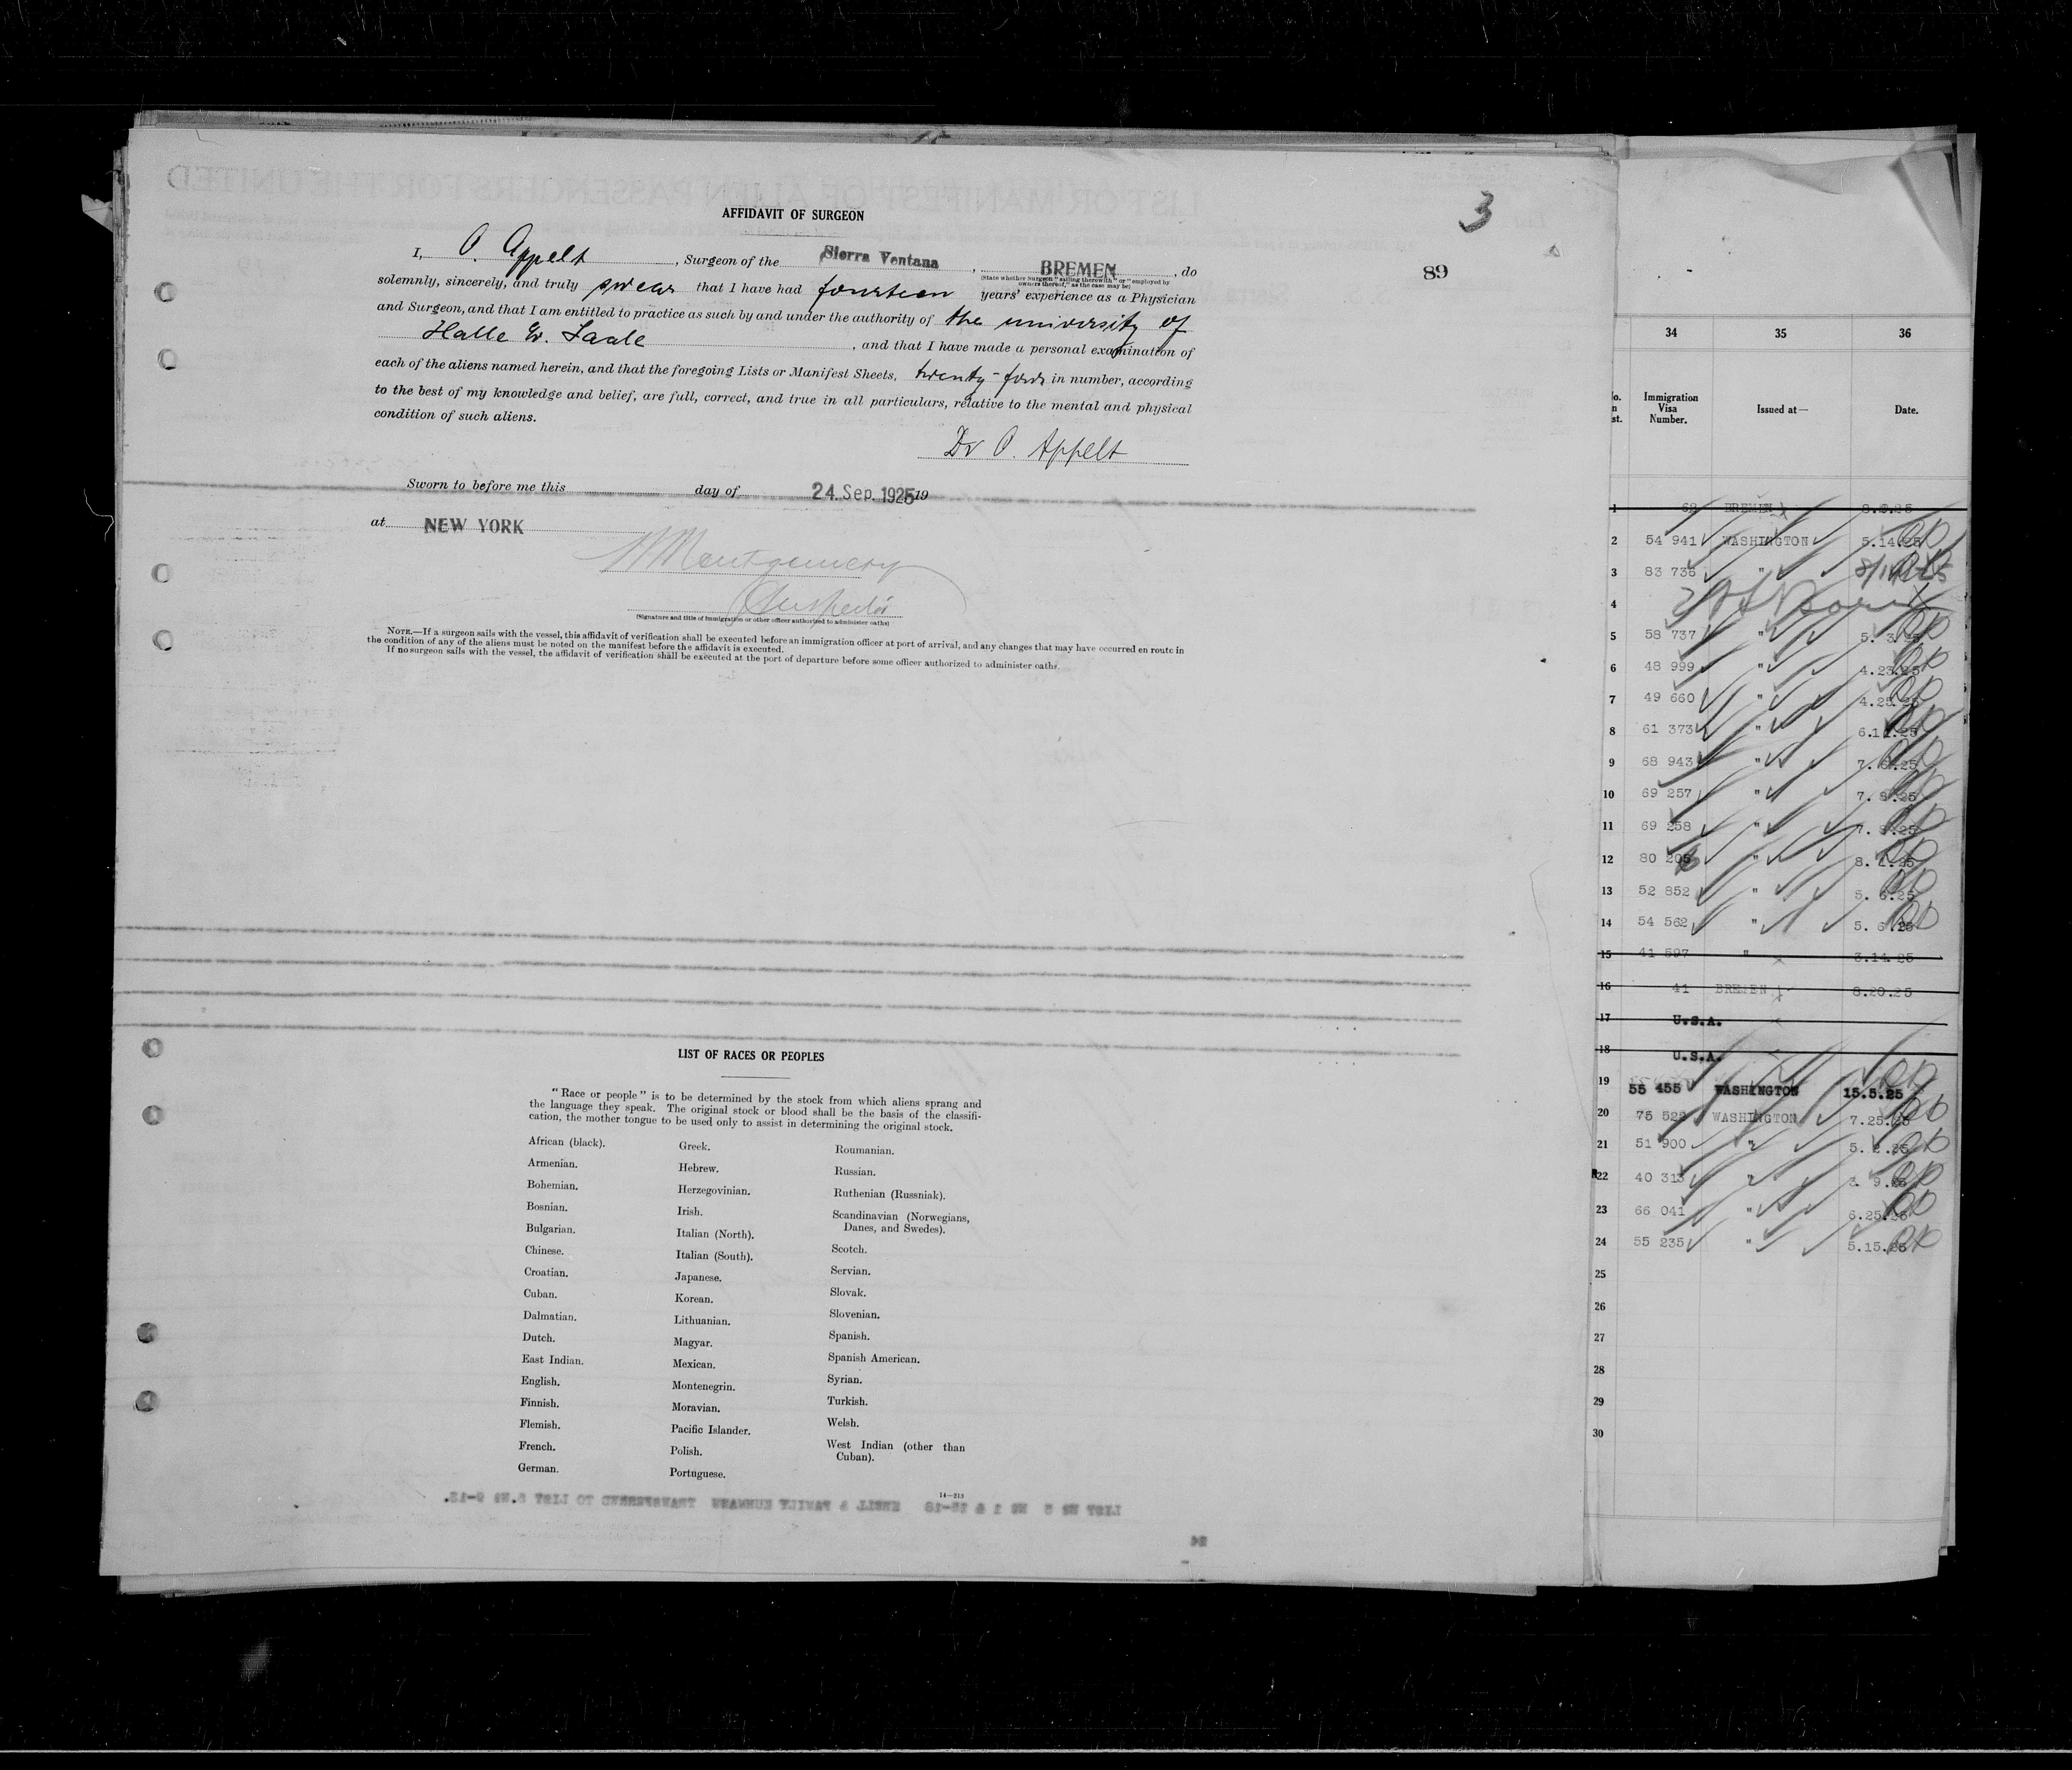 3
AFFIDAVIT OF SURGEON
I, O. Appelt, Surgeon of the Sierra Ventana, BREMEN, do
(State whether Surgeon "sailing therewith" or "employed by
owners thereof," as the case may be)
89
solemnly, sincerely, and truly swear that I have had fourteen years' experience as a Physician
and Surgeon, and that I am entitled to practice as such by and under the authority of the university of
Halle, and that I have made a personal examination of
each of the aliens named herein, and that the foregoing Lists or Manifest Sheets, twenty-four in number, according
to the best of my knowledge and belief, are full, correct, and true in all particulars, relative to the mental and physical
condition of such aliens.
Dr O. Appelt
Sworn to before me this day of 24. Sep. 1925 19
at NEW YORK
Montgomery
Inspector
(Signature and title of immigration or other officer authorized to administer oaths)
NOTE.—If a surgeon sails with the vessel, this affidavit of verification shall be executed before an immigration officer at port of arrival, and any changes that may have occurred en route in
the condition of any of the aliens must be noted on the manifest before the affidavit is executed.
If no surgeon sails with the vessel, the affidavit of verification shall be executed at the port of departure before some officer authorized to administer oaths.
LIST OF RACES OR PEOPLES
"Race or people" is to be determined by the stock from which aliens sprang and
the language they speak. The original stock or blood shall be the basis of the classifi-
cation, the mother tongue to be used only to assist in determining the original stock.
African (black).
Armenian.
Bohemian.
Bosnian.
Bulgarian.
Chinese.
Croatian.
Cuban.
Dalmatian.
Dutch.
East Indian.
English.
Finnish.
Flemish.
French.
German.
Greek.
Hebrew.
Herzegovinian.
Irish.
Italian (North).
Italian (South).
Japanese.
Korean.
Lithuanian.
Magyar.
Mexican.
Montenegrin.
Moravian.
Pacific Islander.
Polish.
Portuguese.
Roumanian.
Russian.
Ruthenian (Russniak).
Scandinavian (Norwegians,
Danes, and Swedes).
Scotch.
Servian.
Slovak.
Slovenian.
Spanish.
Spanish American.
Syrian.
Turkish.
Welsh.
West Indian (other than
Cuban).
14—213
34 35 36
Immigration
Visa
Number.
Issued at—
Date.
1 BREMEN
2 54 941 WASHINGTON 5.14.25
3 83 735 "
4
5 58 737 " 5. 3.25
6 48 999 " 4.23.25
7 49 660 " 4.25.25
8 61 373 " 6.11.25
9 68 943 " 7. 6.25
10 69 257 " 7. 8.25
11 69 258 " 7. 8.25
12 80 205 " 8. 4.25
13 52 852 " 5. 6.25
14 54 562 " 5. 6.25
15 41 597 " 3.14.25
16 41 BREMEN 8.20.25
17 U.S.A.
18 U.S.A.
19 55 455 WASHINGTON 15.5.25
20 75 522 WASHINGTON 7.25.25
21 51 900 " 5. 2.25
22 40 313 " 9.25
23 66 041 " 6.25.25
24 55 235 " 5.15.25
25
26
27
28
29
30